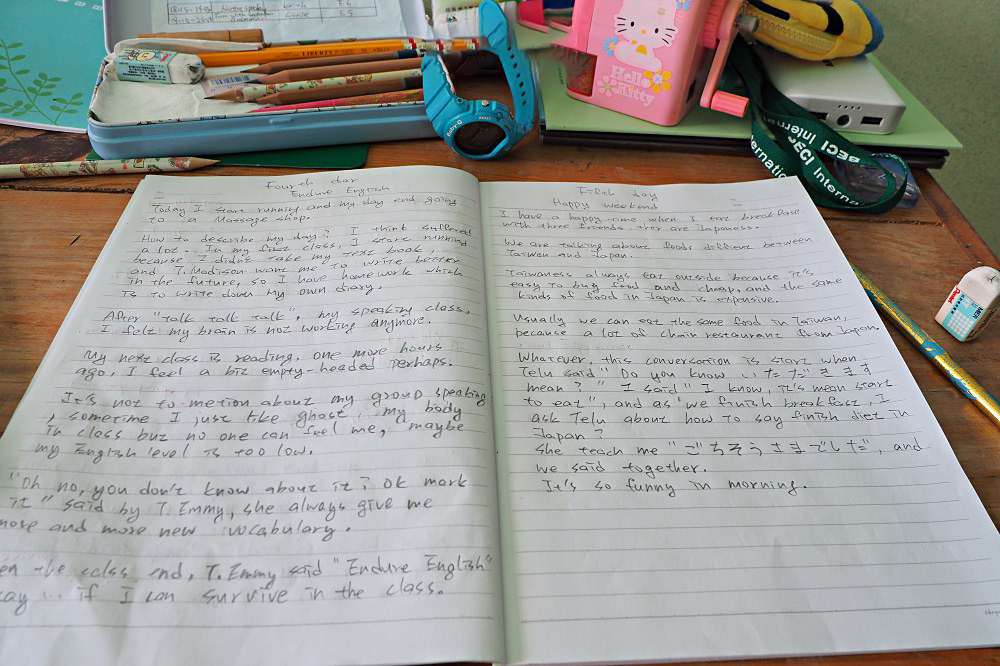 LIBERTY
Baby G
Hello
Kitty
BECI International
Fourth day
Endure English
Today I start running and my day end going
to a Massage shop.
How to describe my day? I think suffered
a lot. In my first class, I start running
because I didn't take my text book
and T. Madison want me to write better
in the future, so I have homework which
is to write down my own diary.
After "talk talk talk", my speaking class,
I felt my brain is not working anymore.
My next class is reading, one more hours
ago, I feel a bit empty-headed perhaps.
It's not to metion about my group speaking
, sometime I just like ghost, my body
in class but no one can feel me, maybe
my English level is too low.
"Oh no, you don't know about it? Ok mark
it" said by T. Emmy, she always give me
more and more new vocabulary.
the class end, T. Emmy said "Endure English"
... if I can survive in the class.
Fifth day
Happy weekend
I have a happy time when I eat breakfast
with three friends. they are Japaness.
We are talking about foods diffient between
Taiwan and Japan.
Taiwaness always eat outside because it's
easy to buy food and cheap, and the same
kinds of food in Japan is expensive.
Usually we can eat the same food in Taiwan,
because a lot of chain restaurant from Japan.
Whatever, this conversation is start when
Telu said "Do you know いただきます
mean?" I said "I know, it's mean start
to eat", and as we finish breakfast, I
ask Telu about how to say finish diet in
Japan?
she teach me "ごちそうさまでした", and
we said together.
It's so funny in morning.